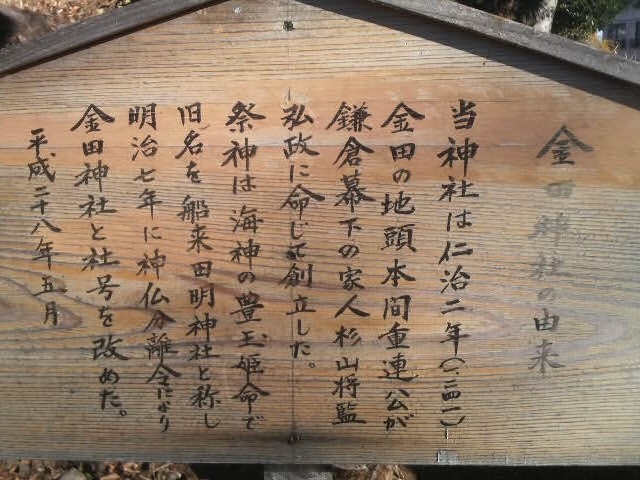 金田神社の由来
当神社は仁治二年(一二四一)
金田の地頭本間重連公が
鎌倉幕下の家人杉山将監
弘政に命じて創立した。
祭神は海神の豊玉姫命で
旧名を船来田明神社と称し
明治七年に神仏分離令により
金田神社と社号を改めた。
平成二十八年五月